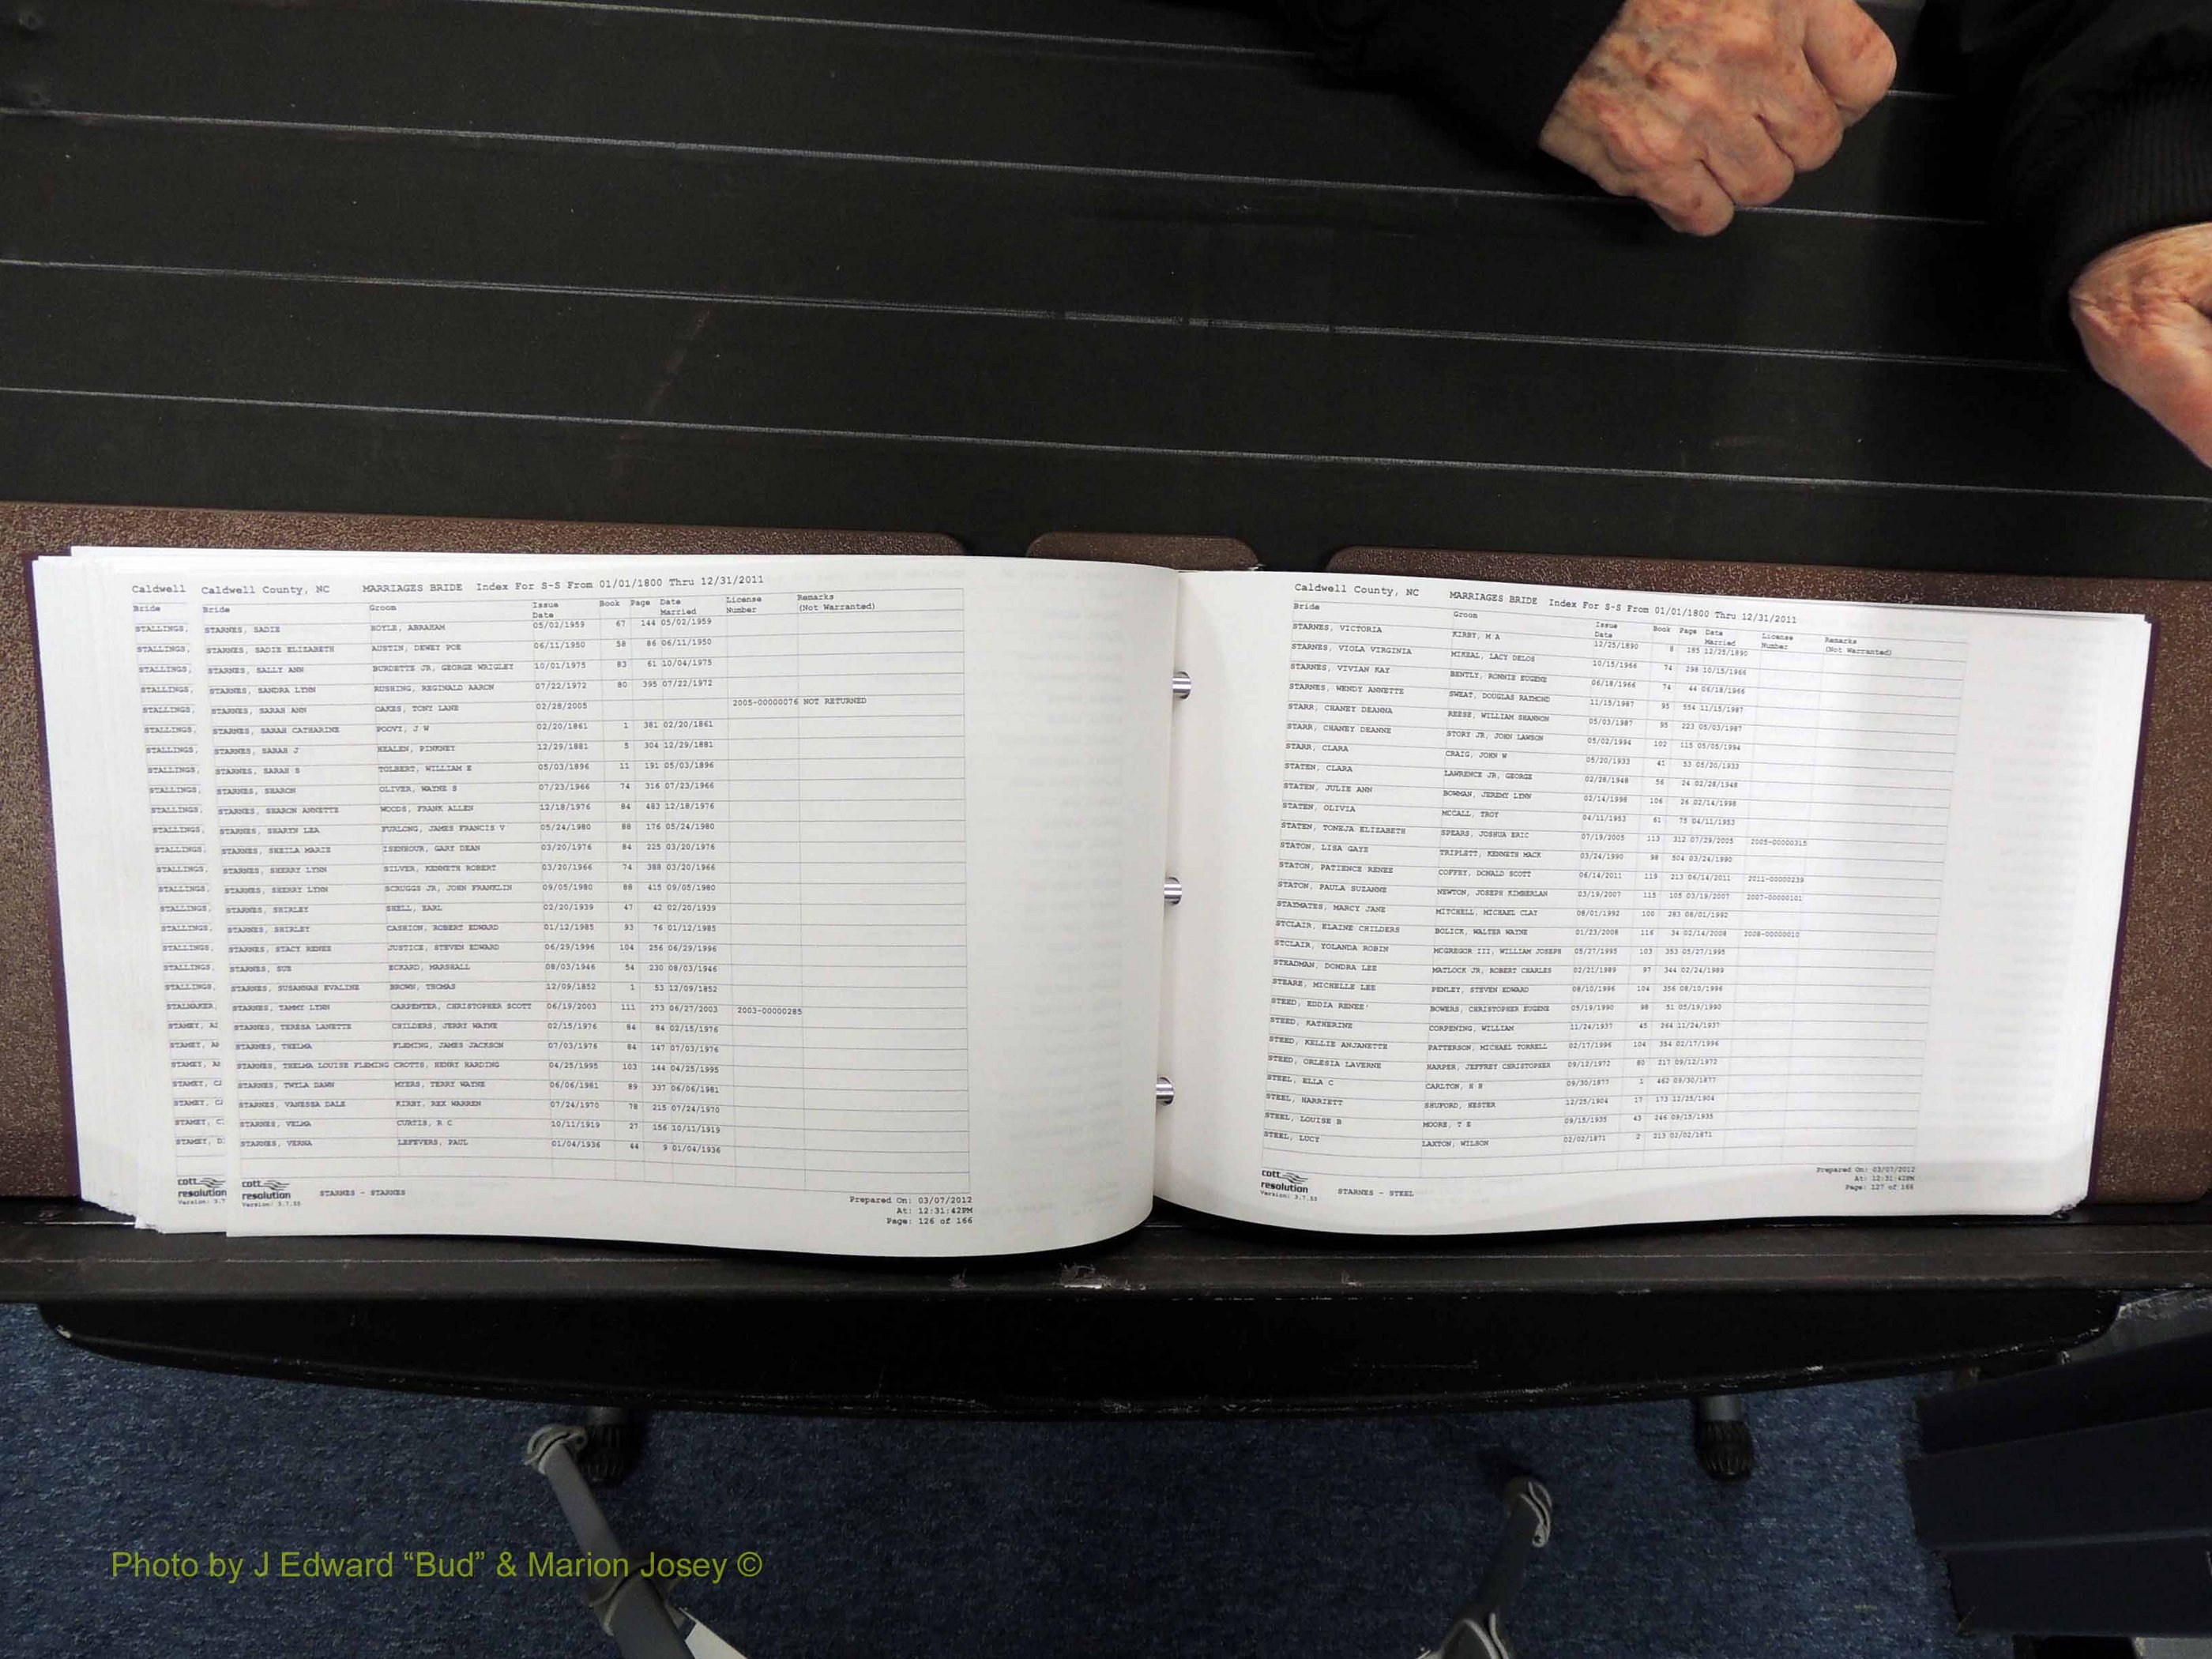 Caldwell
Bride
STALLINGS,
STALLINGS,
STALLINGS,
STALLINGS,
STALLINGS,
STALLINGS,
STALLINGS,
STALLINGS,
STALLINGS,
STALLINGS,
STALLINGS,
STALLINGS,
STALLINGS,
STALLINGS,
STALLINGS,
STALLINGS,
STALLINGS,
STALLINGS,
STALLINGS,
STALNAKER,
STAMEY,
STAMEY,
STAMEY,
STAMEY,
STAMEY,
STAMEY,
STAMEY,
cott
resolution
Version: 3.7
Caldwell County, NC MARRIAGES BRIDE Index For S-S From 01/01/1800 Thru 12/31/2011
Bride Groom Issue Date Book Page Date Married License Number Remarks (Not Warranted)
STARNES, SADIE HOYLE, ABRAHAM 05/02/1959 67 144 05/02/1959
STARNES, SADIE ELIZABETH AUSTIN, DEWEY POE 06/11/1950 58 86 06/11/1950
STARNES, SALLY ANN BURDETTE JR, GEORGE WRIGLEY 10/01/1975 83 61 10/04/1975
STARNES, SANDRA LYNN RUSHING, REGINALD AARON 07/22/1972 80 395 07/22/1972
STARNES, SARAH ANN OAKES, TONY LANE 02/28/2005 2005-00000076 NOT RETURNED
STARNES, SARAH CATHARINE POOVY, J W 02/20/1861 1 381 02/20/1861
STARNES, SARAH J HEALEN, PINKNEY 12/29/1881 5 304 12/29/1881
STARNES, SARAH S TOLBERT, WILLIAM E 05/03/1896 11 191 05/03/1896
STARNES, SHARON OLIVER, WAYNE S 07/23/1966 74 316 07/23/1966
STARNES, SHARON ANNETTE WOODS, FRANK ALLEN 12/18/1976 84 483 12/18/1976
STARNES, SHARYN LEA FURLONG, JAMES FRANCIS V 05/24/1980 88 176 05/24/1980
STARNES, SHEILA MARIE ISENHOUR, GARY DEAN 03/20/1976 84 225 03/20/1976
STARNES, SHERRY LYNN SILVER, KENNETH ROBERT 03/20/1966 74 388 03/20/1966
STARNES, SHERRY LYNN SCRUGGS JR, JOHN FRANKLIN 09/05/1980 88 415 09/05/1980
STARNES, SHIRLEY SHELL, EARL 02/20/1939 47 42 02/20/1939
STARNES, SHIRLEY CASHION, ROBERT EDWARD 01/12/1985 93 76 01/12/1985
STARNES, STACY RENEE JUSTICE, STEVEN EDWARD 06/29/1996 104 256 06/29/1996
STARNES, SUE ECKARD, MARSHALL 08/03/1946 54 230 08/03/1946
STARNES, SUSANNAH EVALINE BROWN, THOMAS 12/09/1852 1 53 12/09/1852
STARNES, TAMMY LYNN CARPENTER, CHRISTOPHER SCOTT 06/19/2003 111 273 06/27/2003 2003-00000285
STARNES, TERESA LANETTE CHILDERS, JERRY WAYNE 02/15/1976 84 84 02/15/1976
STARNES, THELMA FLEMING, JAMES JACKSON 07/03/1976 84 147 07/03/1976
STARNES, THELMA LOUISE FLEMING CROTTS, HENRY HARDING 04/25/1995 103 144 04/25/1995
STARNES, TWYLA DAWN MYERS, TERRY WAYNE 06/06/1981 89 337 06/06/1981
STARNES, VANESSA DALE KIRBY, REX WARREN 07/24/1970 78 215 07/24/1970
STARNES, VELMA CURTIS, R C 10/11/1919 27 156 10/11/1919
STARNES, VERNA LEFEVERS, PAUL 01/04/1936 44 9 01/04/1936
cott
resolution STARNES - STARNES
Version: 3.7.55
Prepared On: 03/07/2012
At: 12:31:42PM
Page: 126 of 166
Caldwell County, NC MARRIAGES BRIDE Index For S-S From 01/01/1800 Thru 12/31/2011
Bride Groom Issue Date Book Page Date Married License Number Remarks (Not Warranted)
STARNES, VICTORIA KIRBY, M A 12/25/1890 8 185 12/25/1890
STARNES, VIOLA VIRGINIA MIKEAL, LACY DELOS 10/15/1966 74 298 10/15/1966
STARNES, VIVIAN KAY BENTLY, RONNIE EUGENE 06/18/1966 74 44 06/18/1966
STARNES, WENDY ANNETTE SWEAT, DOUGLAS RAYMOND 11/15/1987 95 554 11/15/1987
STARR, CHANEY DEANNA REESE, WILLIAM SHANNON 05/03/1987 95 223 05/03/1987
STARR, CHANEY DEANNE STORY JR, JOHN LAWSON 05/02/1994 102 115 05/05/1994
STARR, CLARA CRAIG, JOHN W 05/20/1933 41 53 05/20/1933
STATEN, CLARA LAWRENCE JR, GEORGE 02/28/1948 56 24 02/28/1948
STATEN, JULIE ANN BOWMAN, JEREMY LYNN 02/14/1998 106 26 02/14/1998
STATEN, OLIVIA MCCALL, TROY 04/11/1953 61 75 04/11/1953
STATEN, TONEJA ELIZABETH SPEARS, JOSHUA ERIC 07/19/2005 113 312 07/29/2005 2005-00000315
STATON, LISA GAYE TRIPLETT, KENNETH MACK 03/24/1990 98 504 03/24/1990
STATON, PATIENCE RENEE COFFEY, DONALD SCOTT 06/14/2011 119 213 06/14/2011 2011-00000239
STATON, PAULA SUZANNE NEWTON, JOSEPH KIMBERLAN 03/19/2007 115 105 03/19/2007 2007-00000101
STAYMATES, MARCY JANE MITCHELL, MICHAEL CLAY 08/01/1992 100 283 08/01/1992
STCLAIR, ELAINE CHILDERS BOLICK, WALTER WAYNE 01/23/2008 116 34 02/14/2008 2008-00000010
STCLAIR, YOLANDA ROBIN MCGREGOR III, WILLIAM JOSEPH 05/27/1995 103 353 05/27/1995
STEADMAN, DONDRA LEE MATLOCK JR, ROBERT CHARLES 02/21/1989 97 344 02/24/1989
STEARE, MICHELLE LEE PENLEY, STEVEN EDWARD 08/10/1996 104 356 08/10/1996
STEED, EDDIA RENEE' BOWERS, CHRISTOPHER EUGENE 05/19/1990 98 51 05/19/1990
STEED, KATHERINE CORPENING, WILLIAM 11/24/1937 45 264 11/24/1937
STEED, KELLIE ANJANETTE PATTERSON, MICHAEL TORRELL 02/17/1996 104 354 02/17/1996
STEED, ORLESIA LAVERNE HARPER, JEFFREY CHRISTOPHER 09/12/1972 80 217 09/12/1972
STEEL, ELLA C CARLTON, H H 09/30/1877 1 462 09/30/1877
STEEL, HARRIETT SHUFORD, HESTER 12/25/1904 17 173 12/25/1904
STEEL, LOUISE B MOORE, T E 09/15/1935 43 246 09/15/1935
STEEL, LUCY LAXTON, WILSON 02/02/1871 2 213 02/02/1871
cott
resolution STARNES - STEEL
Version: 3.7.55
Prepared On: 03/07/2012
At: 12:31:42PM
Page: 127 of 166
Photo by J Edward “Bud” & Marion Josey ©